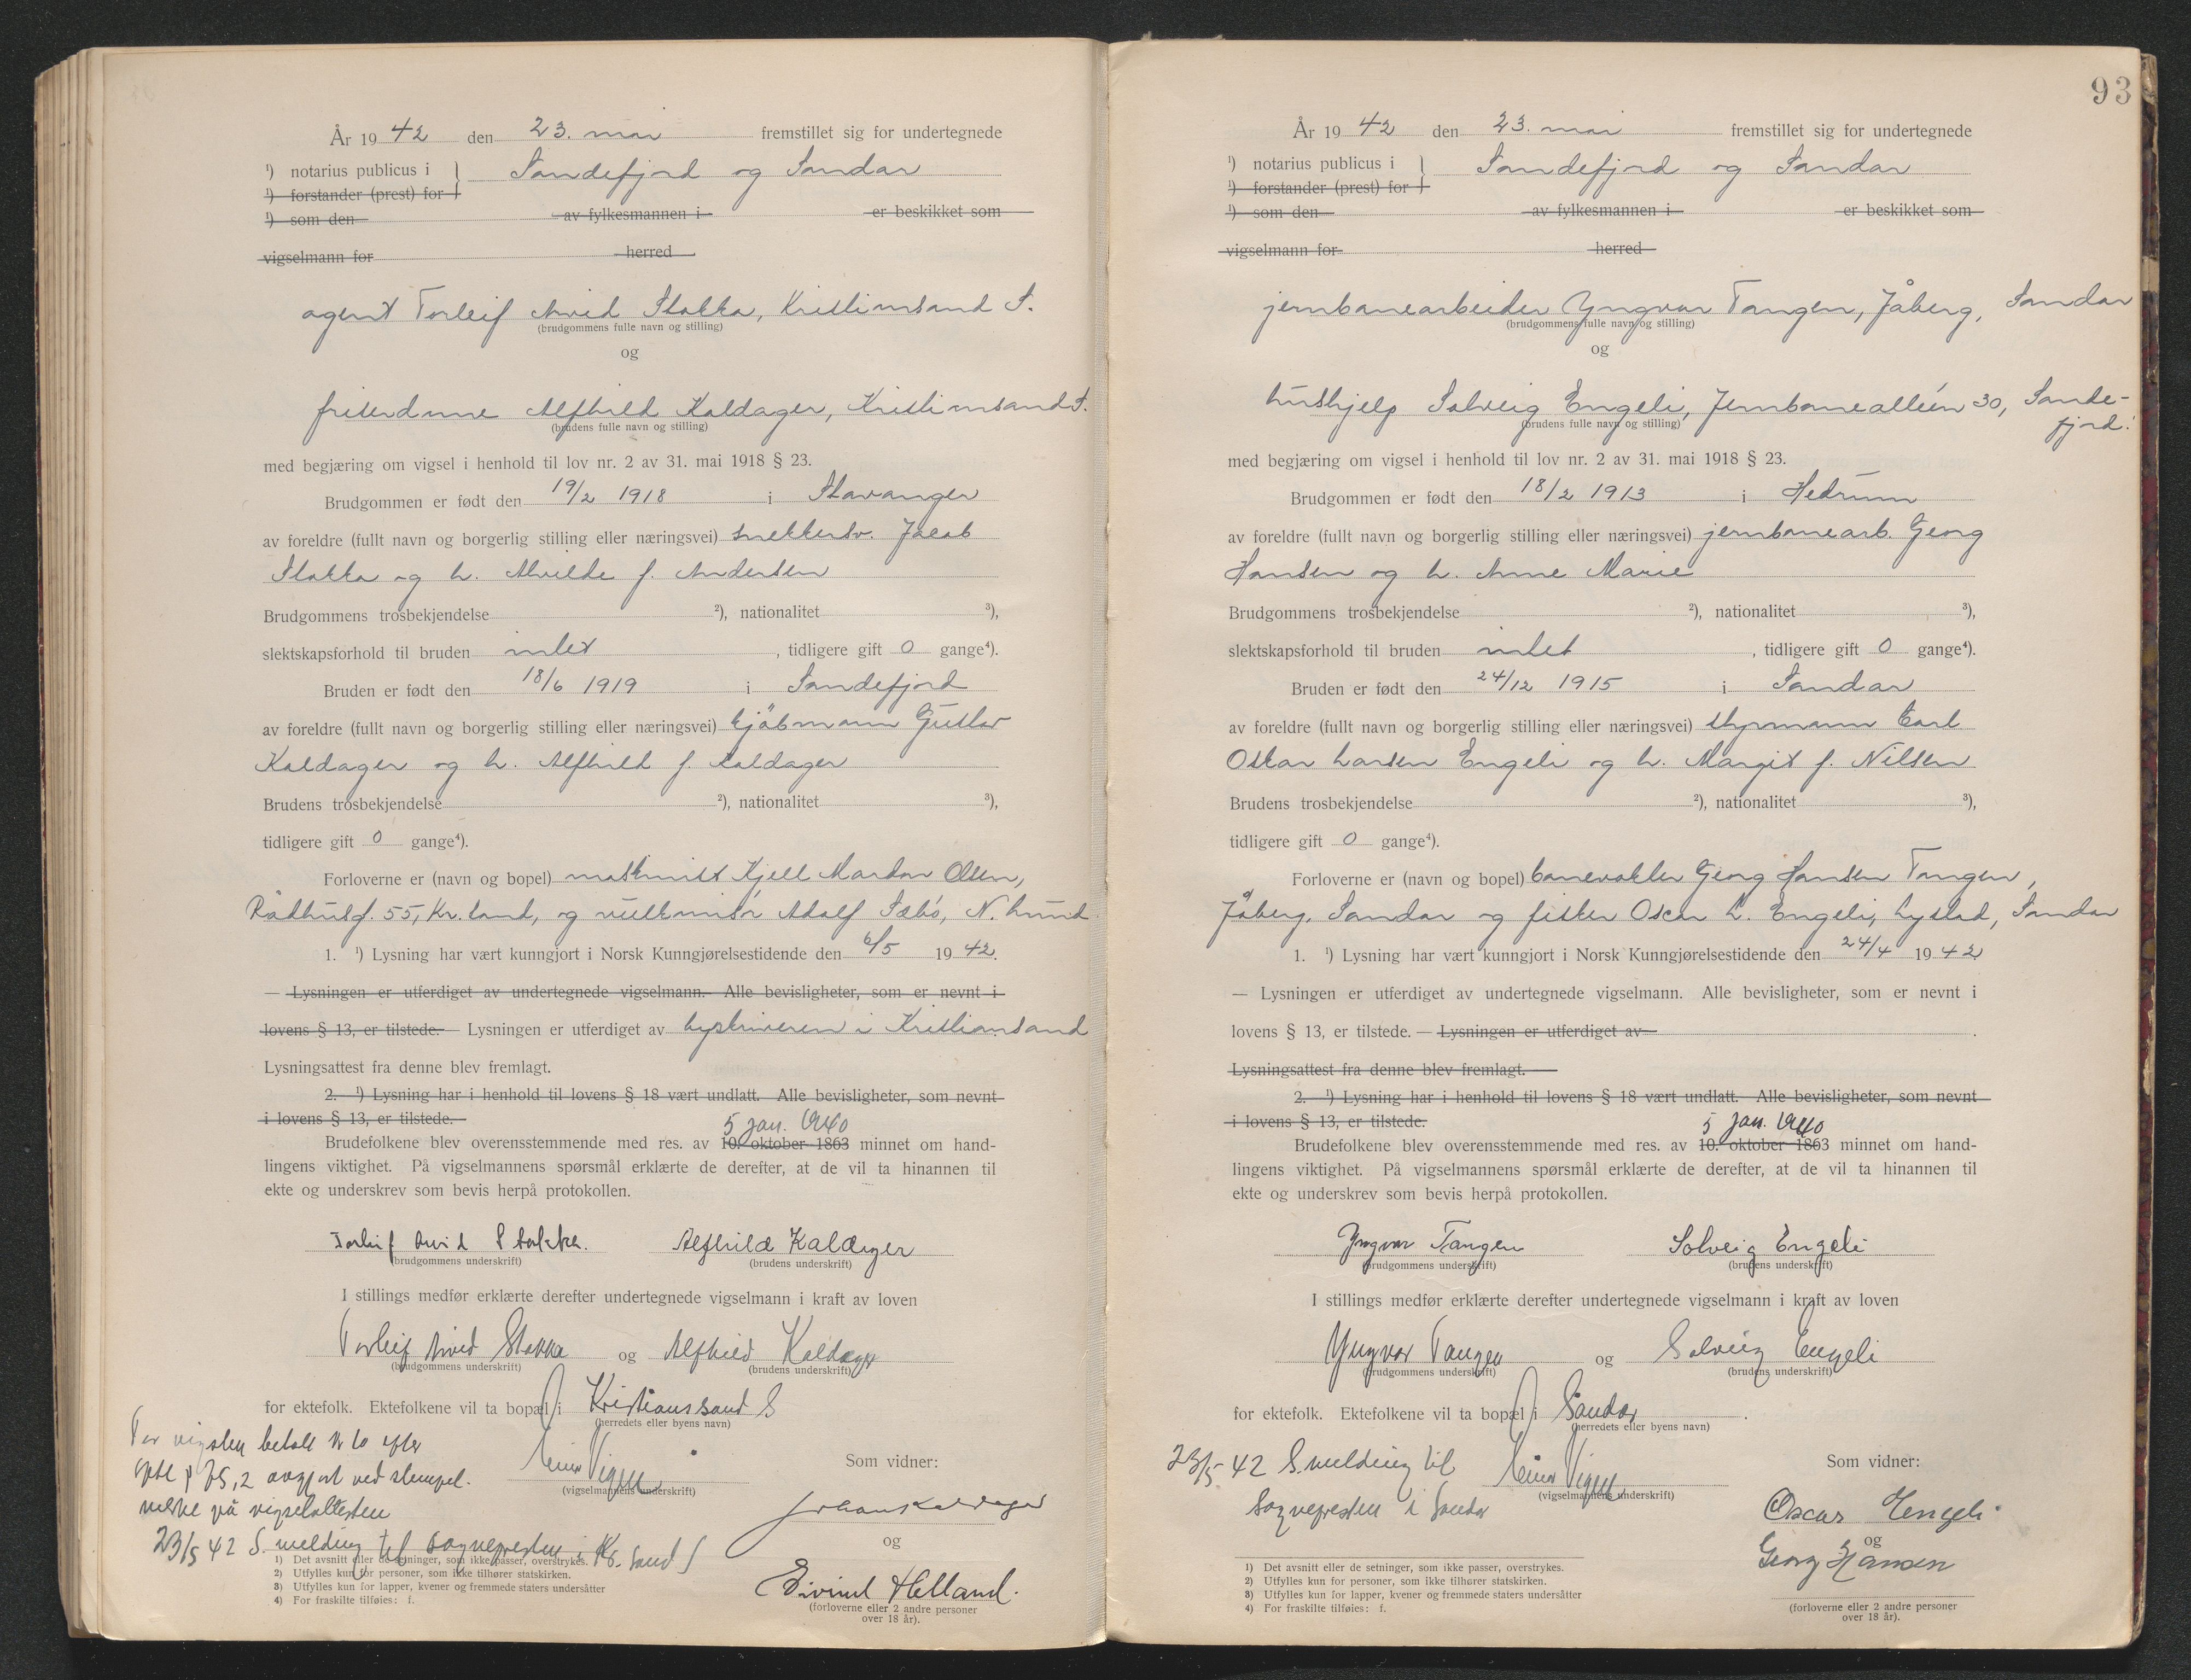 År 1942 den 23. mai fremstillet sig for undertegnede
¹) notarius publicus i } Sandefjord og Sandar
¹) forstander (prest) for
¹) som den av fylkesmannen i er beskikket som
vigselmann for herred
agent Torleif Arvid Stokka, Kristiansand S.
(brudgommens fulle navn og stilling)
og
Alfhild Kaldager, Kristiansand S.
(brudens fulle navn og stilling)
med begjæring om vigsel i henhold til lov nr. 2 av 31. mai 1918 § 23.
Brudgommen er født den 19/2 1918 i Stavanger
av foreldre (fullt navn og borgerlig stilling eller næringsvei) snekkersv. Jacob
Stokka og h. Alvilde f. Andersen
Brudgommens trosbekjendelse ²), nationalitet ³),
slektskapsforhold til bruden intet , tidligere gift 0 gange⁴).
Bruden er født den 18/6 1919 i Sandefjord
av foreldre (fullt navn og borgerlig stilling eller næringsvei) kjøbmann Gustav
Kaldager og h. Alfhild f. Kaldager
Brudens trosbekjendelse ²), nationalitet ³),
tidligere gift 0 gange⁴).
Forloverne er (navn og bopel) maskinist Kjell Olsen,
Rådhusg. 55, Kr.sand, og Adolf Sæbö, N.
1. ¹) Lysning har vært kunngjort i Norsk Kunngjørelsestidende den 6/5 1942.
— Lysningen er utferdiget av undertegnede vigselmann. Alle bevisligheter, som er nevnt i
lovens § 13, er tilstede. — Lysningen er utferdiget av byskriveren i Kristiansand
Lysningsattest fra denne blev fremlagt.
2. ¹) Lysning har i henhold til lovens § 18 vært undlatt. Alle bevisligheter, som nevnt
i lovens § 13, er tilstede.
5 jan. 1940
Brudefolkene blev overensstemmende med res. av 10. oktober 1863 minnet om hand-
lingens viktighet. På vigselmannens spørsmål erklærte de derefter, at de vil ta hinannen til
ekte og underskrev som bevis herpå protokollen.
Torleif Arvid Stokka. Alfhild Kaldager
(brudgommens underskrift) (brudens underskrift)
I stillings medfør erklærte derefter undertegnede vigselmann i kraft av loven
Torleif Arvid Stokka og Alfhild Kaldager
(brudgommens underskrift) (brudens underskrift)
for ektefolk. Ektefolkene vil ta bopæl i Kristianssand S
(herredets eller byens navn)
For vigslen betalt kr 10 efter
§ 75,2 ved stempel.
merke på vigselattesten
(vigselmannens underskrift)
Som vidner:
Johan Kaldager
og
Eivind Helland.
(forloverne eller 2 andre personer
over 18 år).
23/5 42 S. melding til sognepresten i Kr. sand S
1) Det avsnitt eller de setninger, som ikke passer, overstrykes.
2) Utfylles kun for personer, som ikke tilhører statskirken.
3) Utfylles kun for lapper, kvener og fremmede staters undersåtter
4) For fraskilte tilføies: f.
93
År 1942 den 23. mai fremstillet sig for undertegnede
¹) notarius publicus i } Sandefjord og Sandar
¹) forstander (prest) for
¹) som den av fylkesmannen i er beskikket som
vigselmann for herred
jernbanearbeider Yngvar Tangen, Jåberg, Sandar
(brudgommens fulle navn og stilling)
og
hushjelp Solveig Engeli, Jernbanealleén 30, Sande-
fjord.
(brudens fulle navn og stilling)
med begjæring om vigsel i henhold til lov nr. 2 av 31. mai 1918 § 23.
Brudgommen er født den 18/2 1913 i Hedrum
av foreldre (fullt navn og borgerlig stilling eller næringsvei) jernbanearb. Georg
Hansen og h. Anne Marie
Brudgommens trosbekjendelse ²), nationalitet ³),
slektskapsforhold til bruden intet , tidligere gift 0 gange⁴).
Bruden er født den 24/12 1915 i Sandar
av foreldre (fullt navn og borgerlig stilling eller næringsvei) styrmann Carl
Oskar Larsen Engeli og h. Margit f. Nilsen
Brudens trosbekjendelse ²), nationalitet ³),
tidligere gift 0 gange⁴).
Forloverne er (navn og bopel) banevokter Georg Hansen Tangen,
Jåberg, Sandar og fisker Oscar L. Engeli, Lystad, Sandar
1. ¹) Lysning har vært kunngjort i Norsk Kunngjørelsestidende den 24/4 1942
— Lysningen er utferdiget av undertegnede vigselmann. Alle bevisligheter, som er nevnt i
lovens § 13, er tilstede. — Lysningen er utferdiget av .
Lysningsattest fra denne blev fremlagt.
2. ¹) Lysning har i henhold til lovens § 18 vært undlatt. Alle bevisligheter, som nevnt
i lovens § 13, er tilstede.
5 jan. 1940
Brudefolkene blev overensstemmende med res. av 10. oktober 1863 minnet om hand-
lingens viktighet. På vigselmannens spørsmål erklærte de derefter, at de vil ta hinannen til
ekte og underskrev som bevis herpå protokollen.
Yngvar Tangen Solveig Engeli
(brudgommens underskrift) (brudens underskrift)
I stillings medfør erklærte derefter undertegnede vigselmann i kraft av loven
Yngvar Tangen og Solveig Engeli
(brudgommens underskrift) (brudens underskrift)
for ektefolk. Ektefolkene vil ta bopæl i Sandar .
(herredets eller byens navn)
23/5 42 S. melding til
Sognepresten i Sandar
(vigselmannens underskrift)
Som vidner:
Oscar Engeli
og
Georg Hansen
(forloverne eller 2 andre personer
over 18 år).
1) Det avsnitt eller de setninger, som ikke passer, overstrykes.
2) Utfylles kun for personer, som ikke tilhører statskirken.
3) Utfylles kun for lapper, kvener og fremmede staters undersåtter
4) For fraskilte tilføies: f.